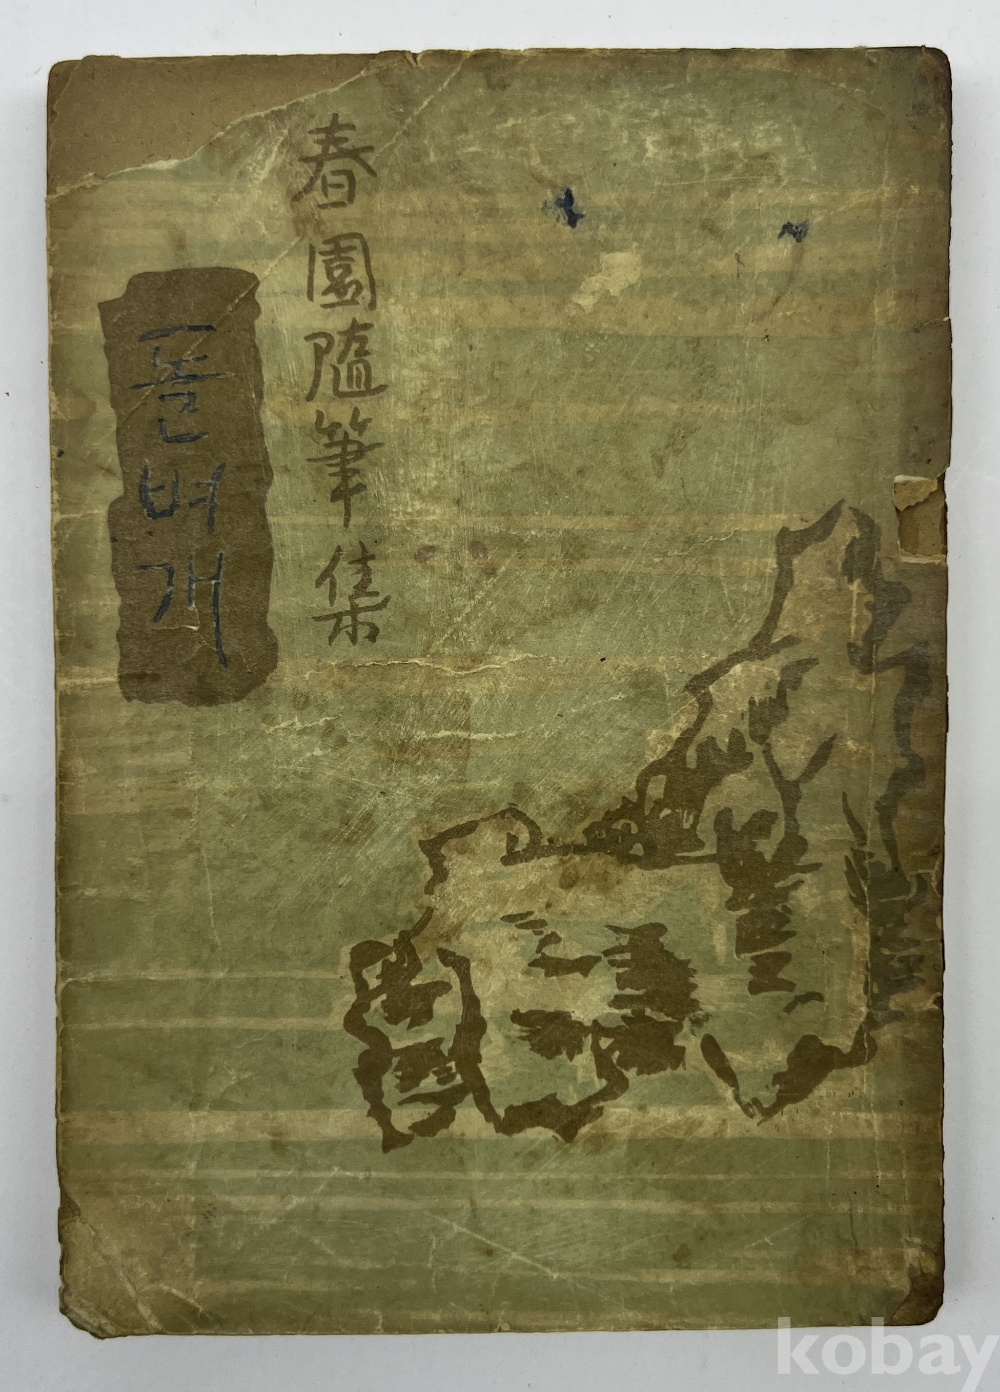 春園隨筆集
돌벼개
kobay